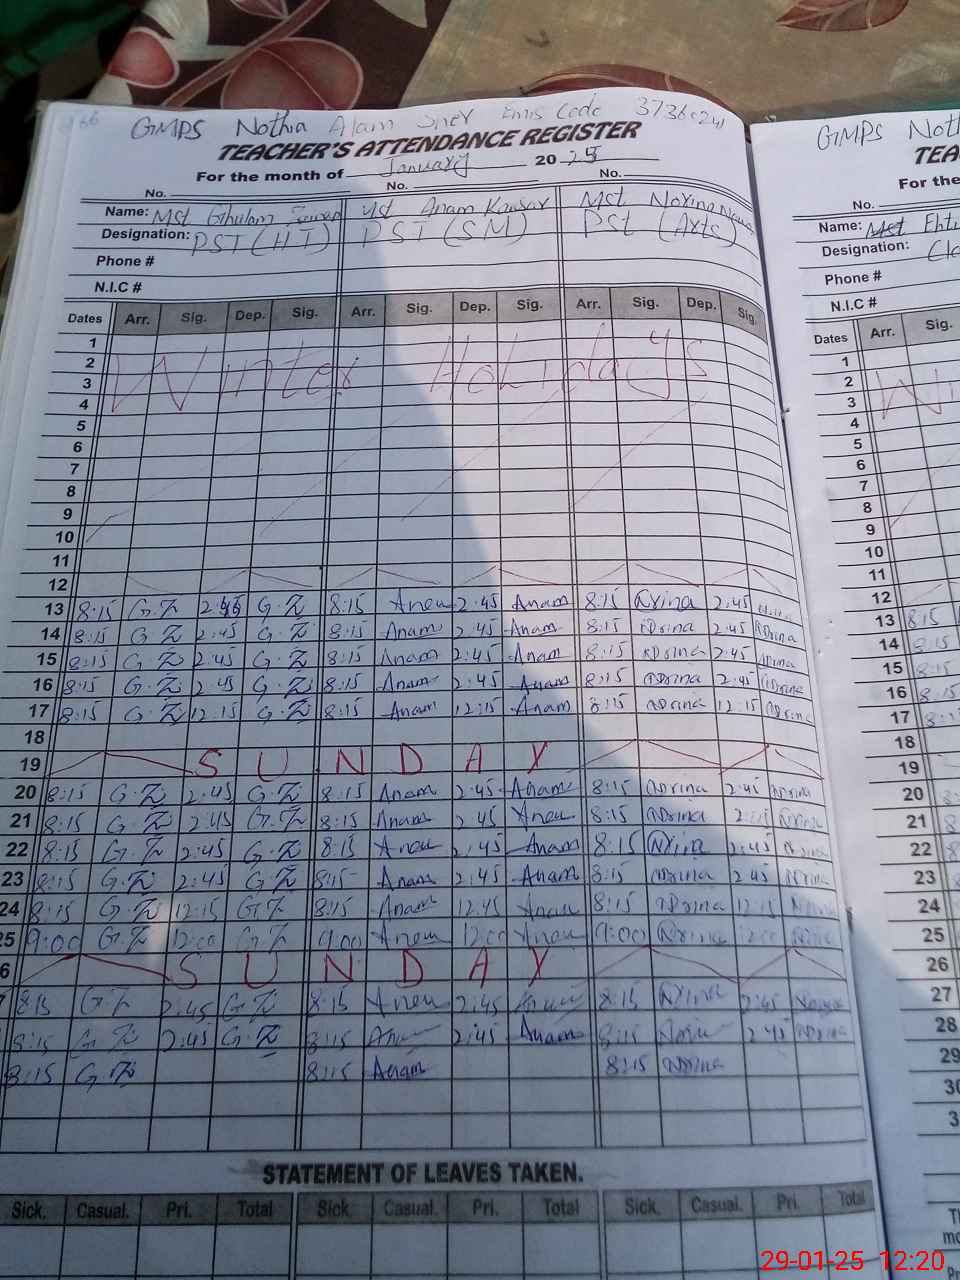 GMPS Nothia Alam Sher Emis Code
TEACHER'S ATTENDANCE REGISTER
For the month of January 2025
No. No. No.
Name: Mst Ghulam Mst Anam Kausar Mst Norina
Designation: PST (HT) PST (SM) PST (Arts)
Phone #
N.I.C #
Dates Arr. Sig. Dep. Sig. Arr. Sig. Dep. Sig. Arr. Sig. Dep. Sig.
1
2 Winter Holidays
3
4
5
6
7
8
9
10
11
12
13 8:15 G.Z 2:45 G.Z 8:15 Anam 2:45 Anam 8:15 Norina 2:45
14 8:15 G.Z 2:45 G.Z 8:15 Anam 2:45 Anam 8:15 Norina 2:45 Norina
15 8:15 G.Z 2:45 G.Z 8:15 Anam 2:45 Anam 8:15 Norina 2:45 Norina
16 8:15 G.Z 2:45 G.Z 8:15 Anam 2:45 Anam 8:15 Norina 2:45 Norina
17 8:15 G.Z 12:15 G.Z 8:15 Anam 12:15 Anam 8:15 Norina 12:15 Norina
18
19 SUNDAY
20 8:15 G.Z 2:45 G.Z 8:15 Anam 2:45 Anam 8:15 Norina 2:45 Norina
21 8:15 G.Z 2:45 G.Z 8:15 Anam 2:45 Anam 8:15 Norina Norina
22 8:15 G.Z 2:45 G.Z 8:15 Anam 2:45 Anam 8:15 Norina 2:45 Norina
23 8:15 G.Z 2:45 G.Z 8:15 Anam 2:45 Anam 8:15 Norina 2:45 Norina
24 8:15 G.Z 12:15 G.Z 8:15 Anam 12:45 Anam 8:15 Norina 12:15 Norina
25 9:00 G.Z 12:00 G.Z 9:00 Anam 12:00 Anam 9:00 Norina 12:00 Norina
6 SUNDAY
7 8:15 G.Z 2:45 G.Z 8:15 Anam 2:45 Anam 8:15 Norina 2:45 Norina
8:15 G.Z 2:45 G.Z 8:15 Anam 2:45 Anam 8:15 Norina 2:45 Norina
8:15 G.Z 8:15 Anam 8:15 Norina
STATEMENT OF LEAVES TAKEN.
Sick. Casual. Pri. Total Sick. Casual. Pri. Total Sick. Casual. Pri. Total
GMPS Noth
TEA
For the
No.
Name: Mst
Designation:
Phone #
N.I.C #
Dates Arr. Sig.
1
2
3
4
5
6
7
8
9
10
11
12
13 8:15
14 8:15
15 8:15
16 8:15
17
18
19
20
21
22
23
24
25
26
27
28
29
30
3
29-01-25 12:20